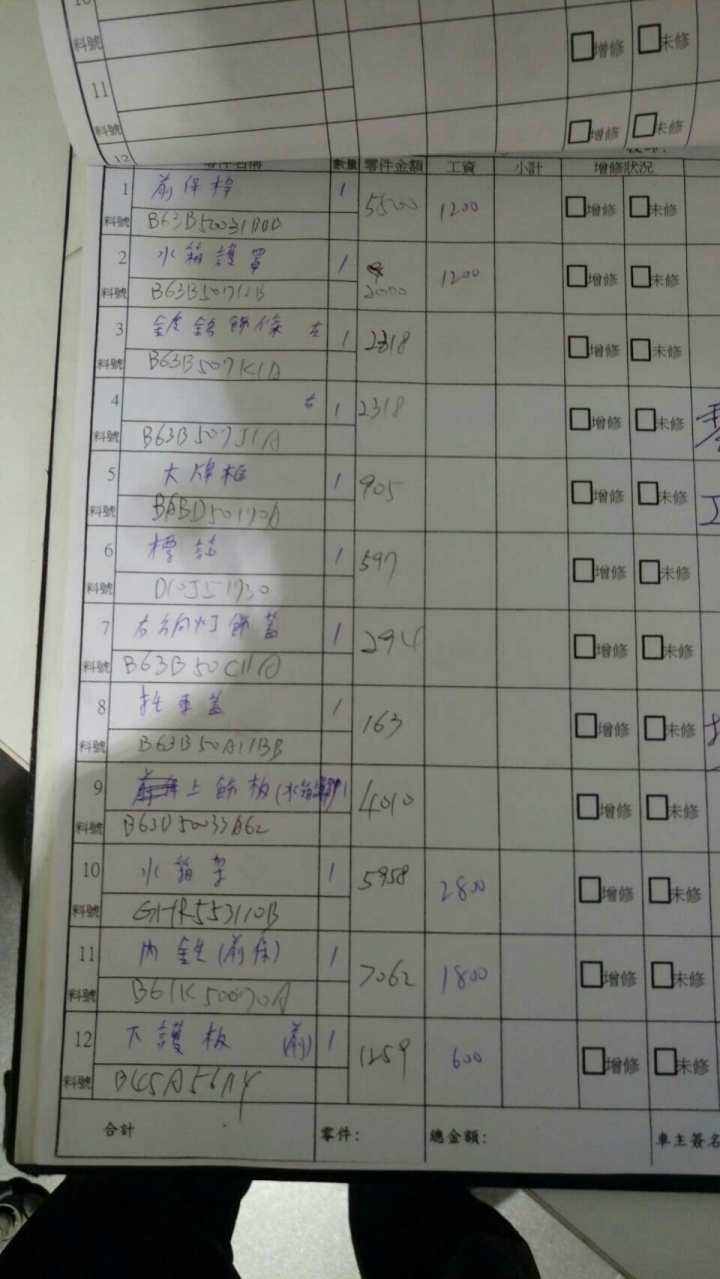 料號
增修 未修
11
料號
增修 未修
12
零件名稱 數量 零件金額 工資 小計 增修狀況
1 前保桿 1 5500 1200 增修 未修
料號 B63B50031BBB
2 水箱護罩 1 2000 1200 增修 未修
料號 B63B50712B
3 鍍鉻飾條 左 1 2318 增修 未修
料號 B63B507K1A
4 右 1 2318 增修 未修
料號 B63B507J1A
5 大牌框 1 905 增修 未修
料號 BABD50170A
6 標誌 1 597 增修 未修
料號 D10J51730
7 右方向灯飾蓋 1 294 增修 未修
料號 B63B50C11A
8 托車蓋 1 163 增修 未修
料號 B63B50A11BB
9 上飾板(水箱 1 4010 增修 未修
料號
10 水箱架 1 5958 2800 增修 未修
料號 GHR553110B
11 內鉄(前保) 1 7062 1800 增修 未修
料號 B61K50070A
12 大護板 (前) 1 1259 600 增修 未修
料號 B45A561A4
合計 零件: 總金額: 車主簽名